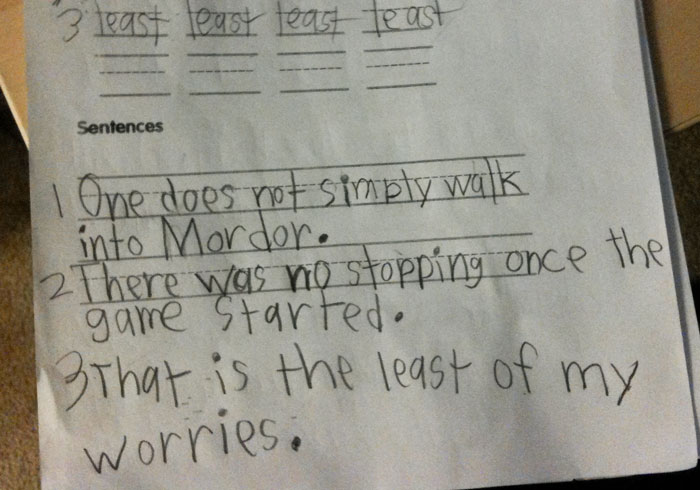 3 least least least least
Sentences
1 One does not simply walk
into Mordor.
2 There was no stopping once the
game started.
3 That is the least of my
worries.